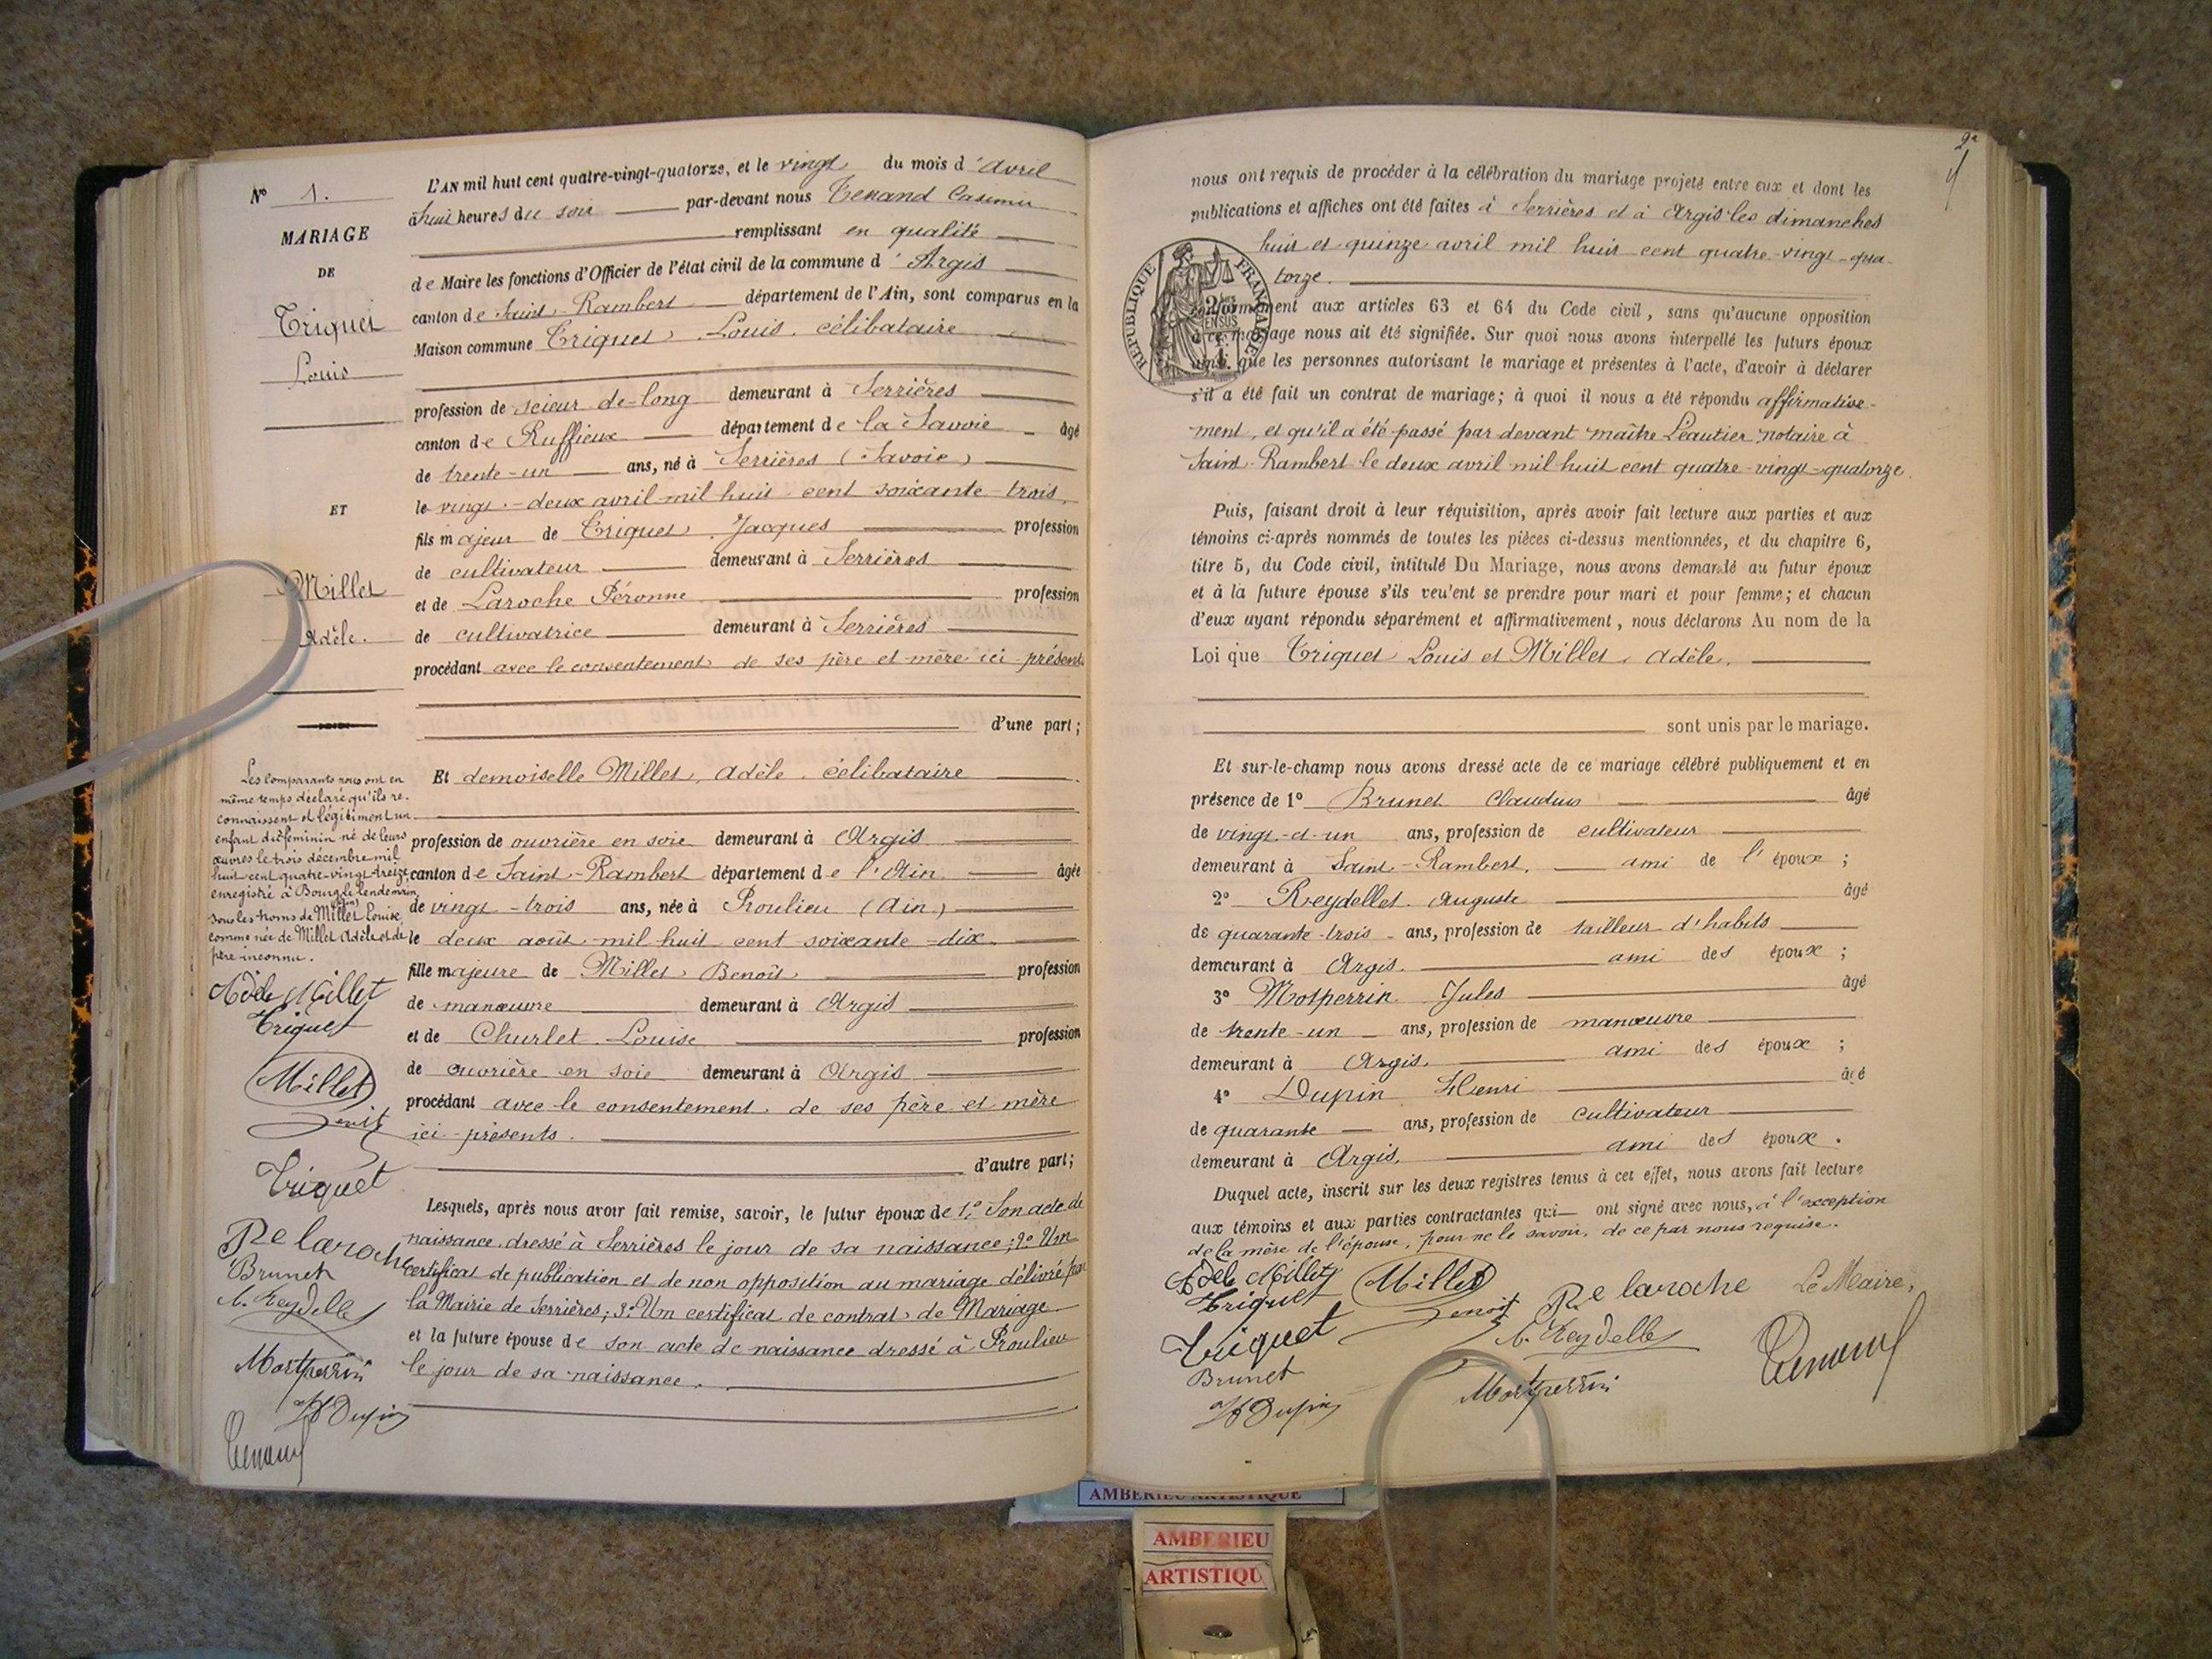 Nº 1.
MARIAGE
DE
Triquet
Louis
ET
Millet
Adèle.
Les comparants nous ont en
même temps déclaré qu'ils re-
connaissent et légitiment un
enfant du féminin né de leurs
œuvres le trois décembre mil
huit-cent quatre-vingt-treize,
enregistré à Bourg le lendemain,
(Ain)
sous les noms de Millet Louise,
comme née de Millet Adèle et de
père inconnu.
Adèle Millet
Triquet
Millet
Benoit
Triquet
Pe laroche
Brunet
A. Reydellet
Mortperrin
H Dupin
Tenand
L'AN mil huit cent quatre-vingt-quatorze, et le vingt du mois d'avril
à huit heures du soir par-devant nous Tenand Casimir
remplissant en qualité
de Maire les fonctions d'Officier de l'état civil de la commune d'Argis
canton de Saint-Rambert département de l'Ain, sont comparus en la
Maison commune Triquet Louis, célibataire
profession de scieur de long demeurant à Serrières
canton de Ruffieux département de la Savoie âgé
de trente-un ans, né à Serrières (Savoie)
le vingt-deux avril mil huit cent soixante-trois,
fils majeur de Triquet Jacques profession
de cultivateur demeurant à Serrières
et de Laroche Péronne profession
de cultivatrice demeurant à Serrières
procédant avec le consentement de ses père et mère ici présents
d'une part;
Et demoiselle Millet, Adèle, célibataire
profession de ouvrière en soie demeurant à Argis
canton de Saint-Rambert département de l'Ain âgée
de vingt-trois ans, née à Proulieu (Ain)
le deux août mil huit cent soixante-dix,
fille majeure de Millet Benoît profession
de manœuvre demeurant à Argis
et de Churlet Louise profession
de ouvrière en soie demeurant à Argis
procédant avec le consentement de ses père et mère
ici présents.
d'autre part;
Lesquels, après nous avoir fait remise, savoir, le futur époux de 1º Son acte de
naissance dressé à Serrières le jour de sa naissance; 2º Un
certificat de publication et de non opposition au mariage délivré par
la Mairie de Serrières; 3º Un certificat de contrat de Mariage
et la future épouse de son acte de naissance dressé à Proulieu
le jour de sa naissance.
nous ont requis de procéder à la célébration du mariage projeté entre eux et dont les
publications et affiches ont été faites à Serrières et à Argis les dimanches
huit et quinze avril mil huit cent quatre-vingt-qua-
torze.
RÉPUBLIQUE FRANÇAISE
conformément aux articles 63 et 64 du Code civil, sans qu'aucune opposition
à ce mariage nous ait été signifiée. Sur quoi nous avons interpellé les futurs époux
ainsi que les personnes autorisant le mariage et présentes à l'acte, d'avoir à déclarer
s'il a été fait un contrat de mariage; à quoi il nous a été répondu affirmative-
ment, et qu'il a été passé par devant maître Léautier, notaire à
Saint-Rambert le deux avril mil huit cent quatre-vingt-quatorze.
Puis, faisant droit à leur réquisition, après avoir fait lecture aux parties et aux
témoins ci-après nommés de toutes les pièces ci-dessus mentionnées, et du chapitre 6,
titre 5, du Code civil, intitulé Du Mariage, nous avons demandé au futur époux
et à la future épouse s'ils veulent se prendre pour mari et pour femme; et chacun
d'eux ayant répondu séparément et affirmativement, nous déclarons Au nom de la
Loi que Triquet Louis et Millet, Adèle,
sont unis par le mariage.
Et sur-le-champ nous avons dressé acte de ce mariage célébré publiquement et en
présence de 1º Brunet Claudius âgé
de vingt-et-un ans, profession de cultivateur
demeurant à Saint-Rambert, ami de l'époux;
2º Reydellet Auguste âgé
de quarante-trois ans, profession de tailleur d'habits
demeurant à Argis. ami des époux;
3º Mosperrin Jules âgé
de trente-un ans, profession de manœuvre
demeurant à Argis. ami des époux;
4º Dupin Henri âgé
de quarante ans, profession de cultivateur
demeurant à Argis. ami des époux.
Duquel acte, inscrit sur les deux registres tenus à cet effet, nous avons fait lecture
aux témoins et aux parties contractantes qui ont signé avec nous, à l'exception
de la mère de l'épouse, pour ne le savoir, de ce par nous requise.
Adèle Millet
Triquet
Millet
Benoit
Pe laroche
Le Maire,
Triquet
A. Reydellet
Tenand
Brunet
Mortperrin
H Dupin
AMBERIEU ARTISTIQUE
AMBERIEU
ARTISTIQU